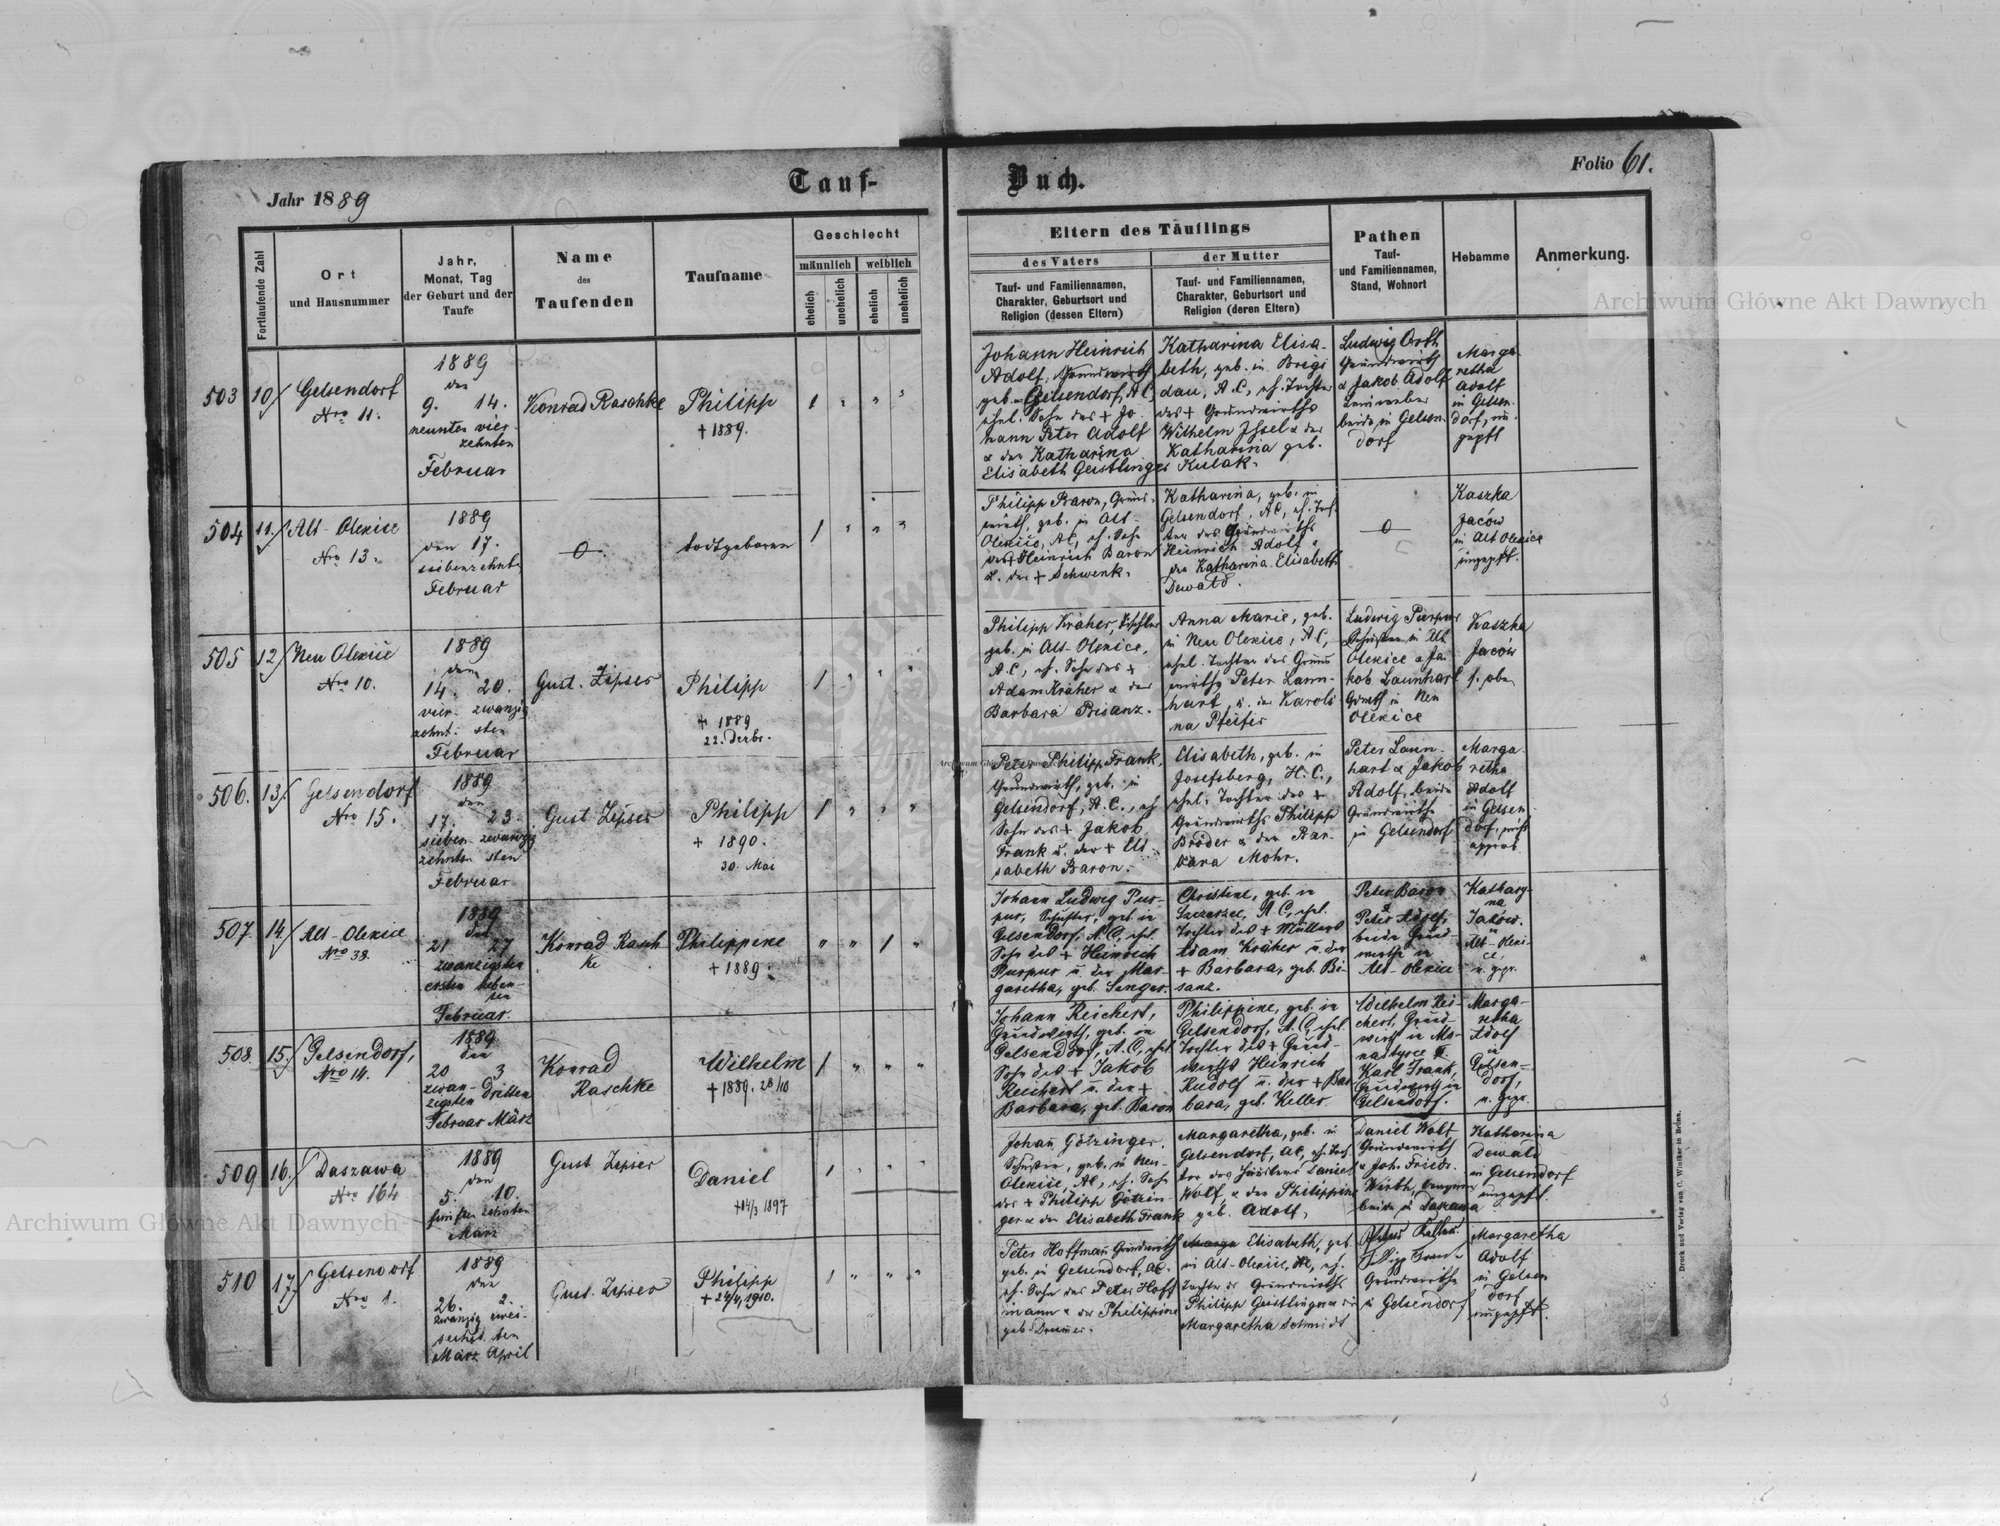 Jahr 1889
Tauf-
Buch.
Folio 61.
Fortlaufende Zahl
Ort
und Hausnummer
Jahr,
Monat, Tag
der Geburt und der
Taufe
Name
des
Taufenden
Taufname
Geschlecht
männlich
weiblich
ehelich
unehelich
ehelich
unehelich
Eltern des Täuflings
des Vaters
Tauf- und Familiennamen,
Charakter, Geburtsort und
Religion (dessen Eltern)
der Mutter
Tauf- und Familiennamen,
Charakter, Geburtsort und
Religion (deren Eltern)
Pathen
Tauf-
und Familiennamen,
Stand, Wohnort
Hebamme
Anmerkung.
503 10
Gelsendorf
Nro 11.
1889
den
9. 14.
neunten vier-
zehnten
Februar
Konrad Raschke
Philipp
+ 1889.
Johann Heinrich
Adolf, Grundwirth
geb. in Gelsendorf, A.C,
ehel. Sohn des + Jo-
hann Peter Adolf
& der Katharina
Elisabeth Geistlinger
Katharina Elisa-
beth, geb. in Brigi
dau, A.C, eh. Tochter
des + Grundwirths
Wilhelm Issel & der
Katharina geb.
Kulak.
Ludwig Orth
Grundwirth
& Jakob Adolf
beide in Gelsen-
dorf
Marga-
retha
Adolf
in Gelsen-
dorf, un-
gepft
504 11.
Alt-Olexice
Nro 13.
1889
den 17.
siebenzehnten
Februar
0
todtgeboren
Philipp Baron, Grund-
wirth, geb. in Alt-
Olexice, AC, eh. Sohn
des + Heinrich Baron
u. der + Schwenk.
Katharina, geb. in
Gelsendorf, AC, eh. Toch-
ter des Grundwirths
Heinrich Adolf &
der Katharina Elisabeth
Dewald.
0
Kaszka
Jaców
in Alt Olexice
ungepft.
505 12
Neu Olexice
Nro 10.
1889
den
14. 20.
vier- zwanzig
zehnt. sten
Februar
Gust. Zipser
Philipp
+ 1889
22. Dezbr.
Philipp Kräher, Tischler
geb. in Alt-Olexice,
A.C, eh. Sohn des +
Adam Kräher & der
Barbara Bisanz.
Anna Marie, geb.
in Neu Olexice, A.C,
ehel. Tochter des Grund-
wirths Peter Laun-
hart, u. der Karoli
na Pfeifer
Ludwig Purpur
Schuster in Alt
Olexice & Ja-
kob Launhart
Grwth in Neu
Olexice
Kaszka
Jaców
s. oben
506. 13.
Gelsendorf
Nro 15.
1889
den
17. 23.
sieben- zwanzig
zehnten sten
Februar
Gust Zipser
Philipp
+ 1890.
30. Mai
Peter Philipp Frank,
Grundwirth, geb. in
Gelsendorf, A.C., eh
Sohn des + Jakob
Frank u. der + Eli-
sabeth Baron.
Elisabeth, geb. in
Josefsberg, H.C.,
ehel. Tochter des +
Grundwirths Philipp
Bröder & der Bar-
bara Mohr.
Peter Laun-
hart & Jakob
Adolf, beide
Grundwirthe
in Gelsendorf
Marga-
retha
Adolf
in Gelsen
dorf, nicht
approb.
507 14
Alt-Olexice
Nro 38.
1889
den
21 27
zwanzigsten
ersten sieben-
ten
Februar.
Konrad Rasch
ke
Philippine
+ 1889.
Johann Ludwig Pur-
pur, Schuster, geb. in
Gelsendorf, A.C, ehel.
Sohn des + Heinrich
Purpur u. der Mar-
garetha, geb. Senger.
Christine, geb. in
A.C, ehel.
Tochter des + Müllers
Adam Kräher u. der
+ Barbara, geb. Bi-
sanz.
Peter Baron
Peter Adolf,
beide Grund-
wirthe in
Alt-Olexice
Kathary-
na
Jaków.
in
Alt-Olexi-
ce,
u. gepr.
508. 15.
Gelsendorf,
Nro 14.
1889
den
20 3
zwan- dritten
zigsten
Februar März
Konrad
Raschke
Wilhelm
+ 1889. 28/10
Johann Reichert,
Grundwirth, geb. in
Gelsendorf, A.C, ehel
Sohn des + Jakob
Reichert u. der +
Barbara, geb. Baron
Philippine, geb. in
Gelsendorf, A.C, ehel.
Tochter des + Grund-
wirths Heinrich
Rudolf u. der + Bar
bara, geb. Keller.
Wilhelm Rei-
chert, Grund-
wirth in Mo-
nastyrce u.
Karl Frank,
Grundwirth in
Gelsendorf.
Marga-
retha
Adolf
in
Gelsen-
dorf,
u. gepr.
509 16.
Daszawa
Nro 164
1889
den
5. 10.
fünften zehnten
März
Gust Zipser
Daniel
+ 14/3 1897
Johann Götzinger.
Schuster, geb. in Neu-
Olexice, AC, eh. Sohn
des + Philipp Götzin-
ger & der Elisabeth Frank
Margaretha, geb. in
Gelsendorf, AC, eh. Toch
ter des Häuslers Daniel
Wolf & der Philippine
geb. Adolf,
Daniel Wolf
Grundwirth
& Joh. Friedr.
Wirth,
beide in Daszawa
Katharina
Dewald
in Gelsendorf
ungepft.
510 17.
Gelsendorf
Nro 1.
1889
den
26. 2.
zwanzig zwei-
sechst. ten
März April
Gust. Zipser
Philipp
+ 24/4, 1910.
Peter Hoffmann Grundwirth
geb. in Gelsendorf, AC.
eh. Sohn des Peter Hoff
mann & der Philippine
geb. Drumer.
Elisabeth, geb.
in Alt-Olexice, AC, eh.
Tochter des Grundwirths
Philipp Geistlinger & der
Margaretha Schmidt
Grundwirthe
in Gelsendorf
Margaretha
Adolf
in Gelsen
dorf
ungepft.
Druck und Verlag von C. Winiker in Brünn.
Archiwum Główne Akt Dawnych
Archiwum Główne Akt Dawnych